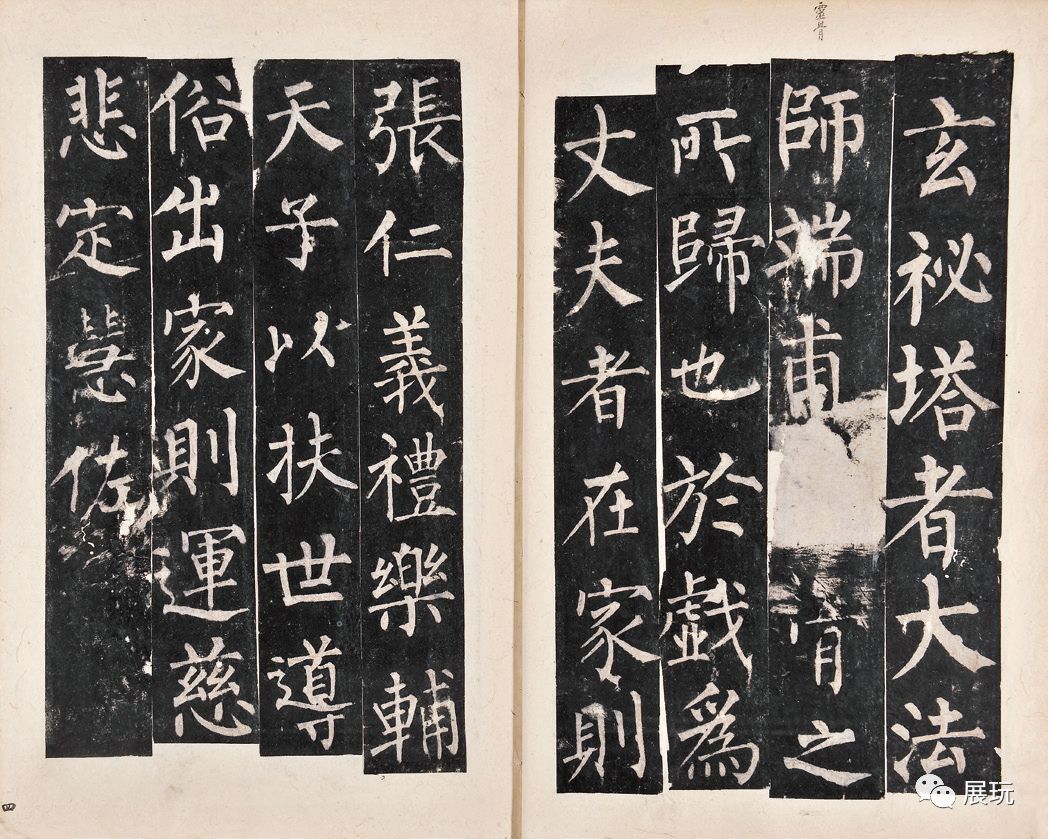 靈骨
玄祕塔者大法
師端甫骨之
所歸也於戲爲
丈夫者在家則
張仁義禮樂輔
天子以扶世導
俗出家則運慈
悲定慧佐
四
展玩